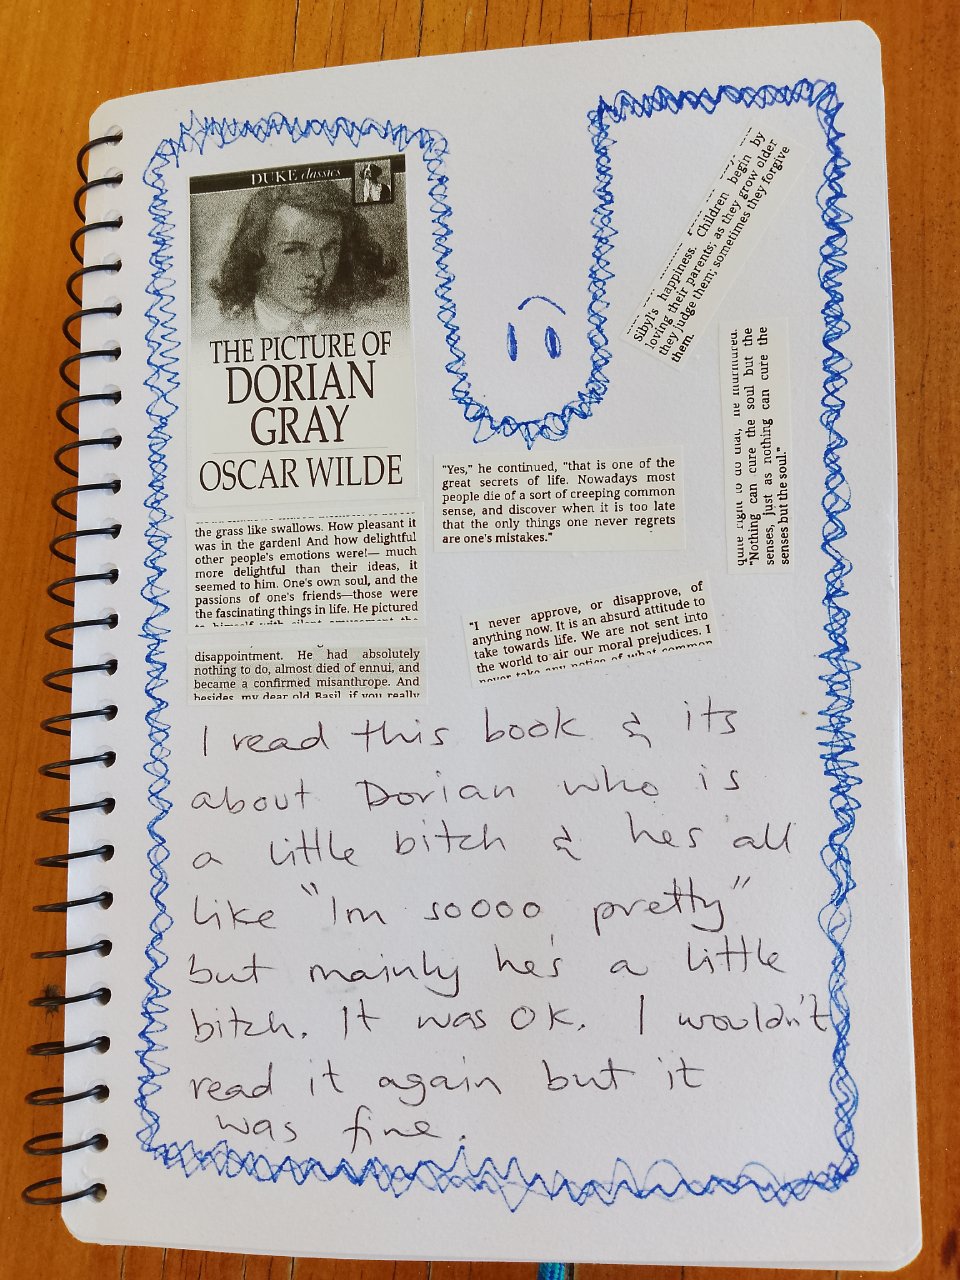 DUKE classics
THE PICTURE OF
DORIAN
GRAY
OSCAR WILDE
the grass like swallows. How pleasant it
was in the garden! And how delightful
other people's emotions were!— much
more delightful than their ideas, it
seemed to him. One's own soul, and the
passions of one's friends—those were
the fascinating things in life. He pictured
disappointment. He had absolutely
nothing to do, almost died of ennui, and
became a confirmed misanthrope. And
besides, my dear old Basil, if you really
"Yes," he continued, "that is one of the
great secrets of life. Nowadays most
people die of a sort of creeping common
sense, and discover when it is too late
that the only things one never regrets
are one's mistakes."
"I never approve, or disapprove, of
anything now. It is an absurd attitude to
take towards life. We are not sent into
the world to air our moral prejudices. I
never take any notice of what common
Sibyl's happiness. Children begin by
loving their parents; as they grow older
they judge them; sometimes they forgive
them.
quite right to do that, he murmured.
"Nothing can cure the soul but the
senses, just as nothing can cure the
senses but the soul."
I read this book & its
about Dorian who is
a little bitch & he's all
like "Im soooo pretty"
but mainly he's a little
bitch. It was OK. I wouldn't
read it again but it
was fine.